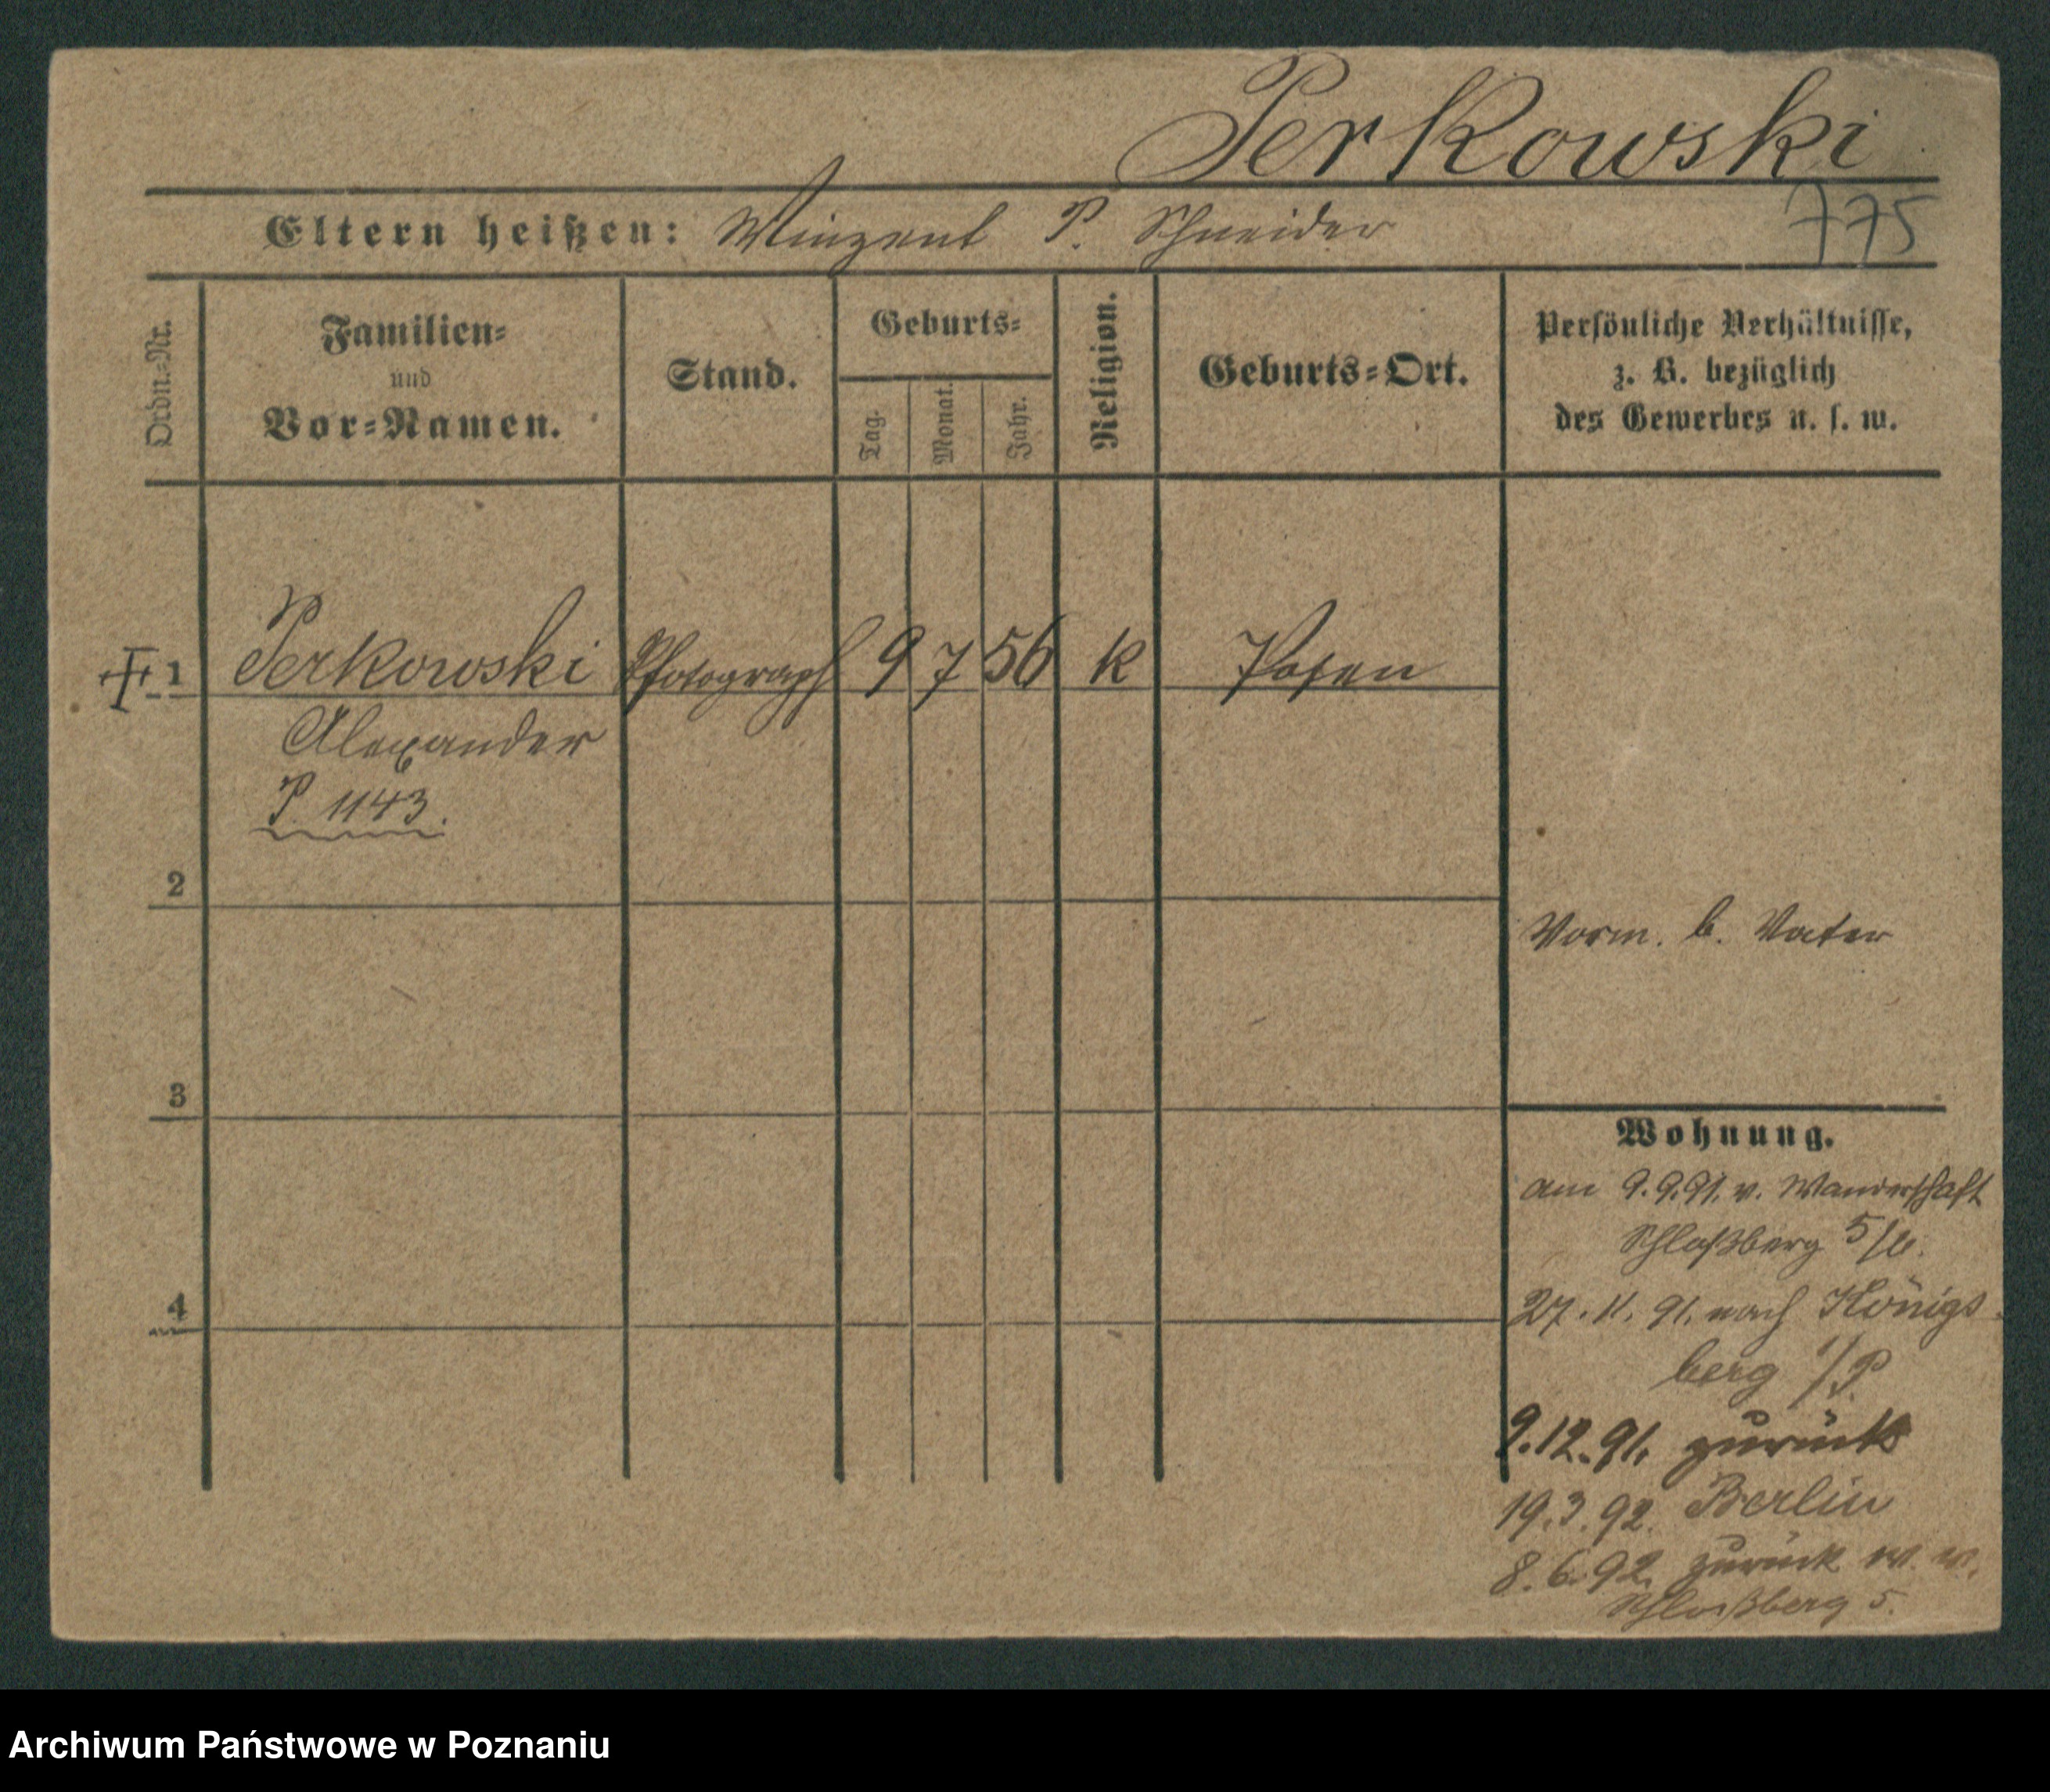 Perkowski
775
Eltern heißen: Winzent P. Schneider
Ordn.-Nr.
Familien-
und
Vor-Namen.
Stand.
Geburts-
Tag.
Monat.
Jahr.
Religion.
Geburts-Ort.
Persönliche Verhältnisse,
z. B. bezüglich
des Gewerbes u. s. w.
1 Perkowski Photograph 9 7 56 k Posen
Alexander
P. 1143.
2
Vorm. b. Vater
3
Wohnung.
am 9.9.91. v. Wanderschaft
Schloßberg 5/b.
4
27. 11. 91. nach Königs
berg i/P.
9.12.91. zurück
19.3.92. Berlin
8.6.92. zurück w. w.
Schloßberg 5.
Archiwum Państwowe w Poznaniu